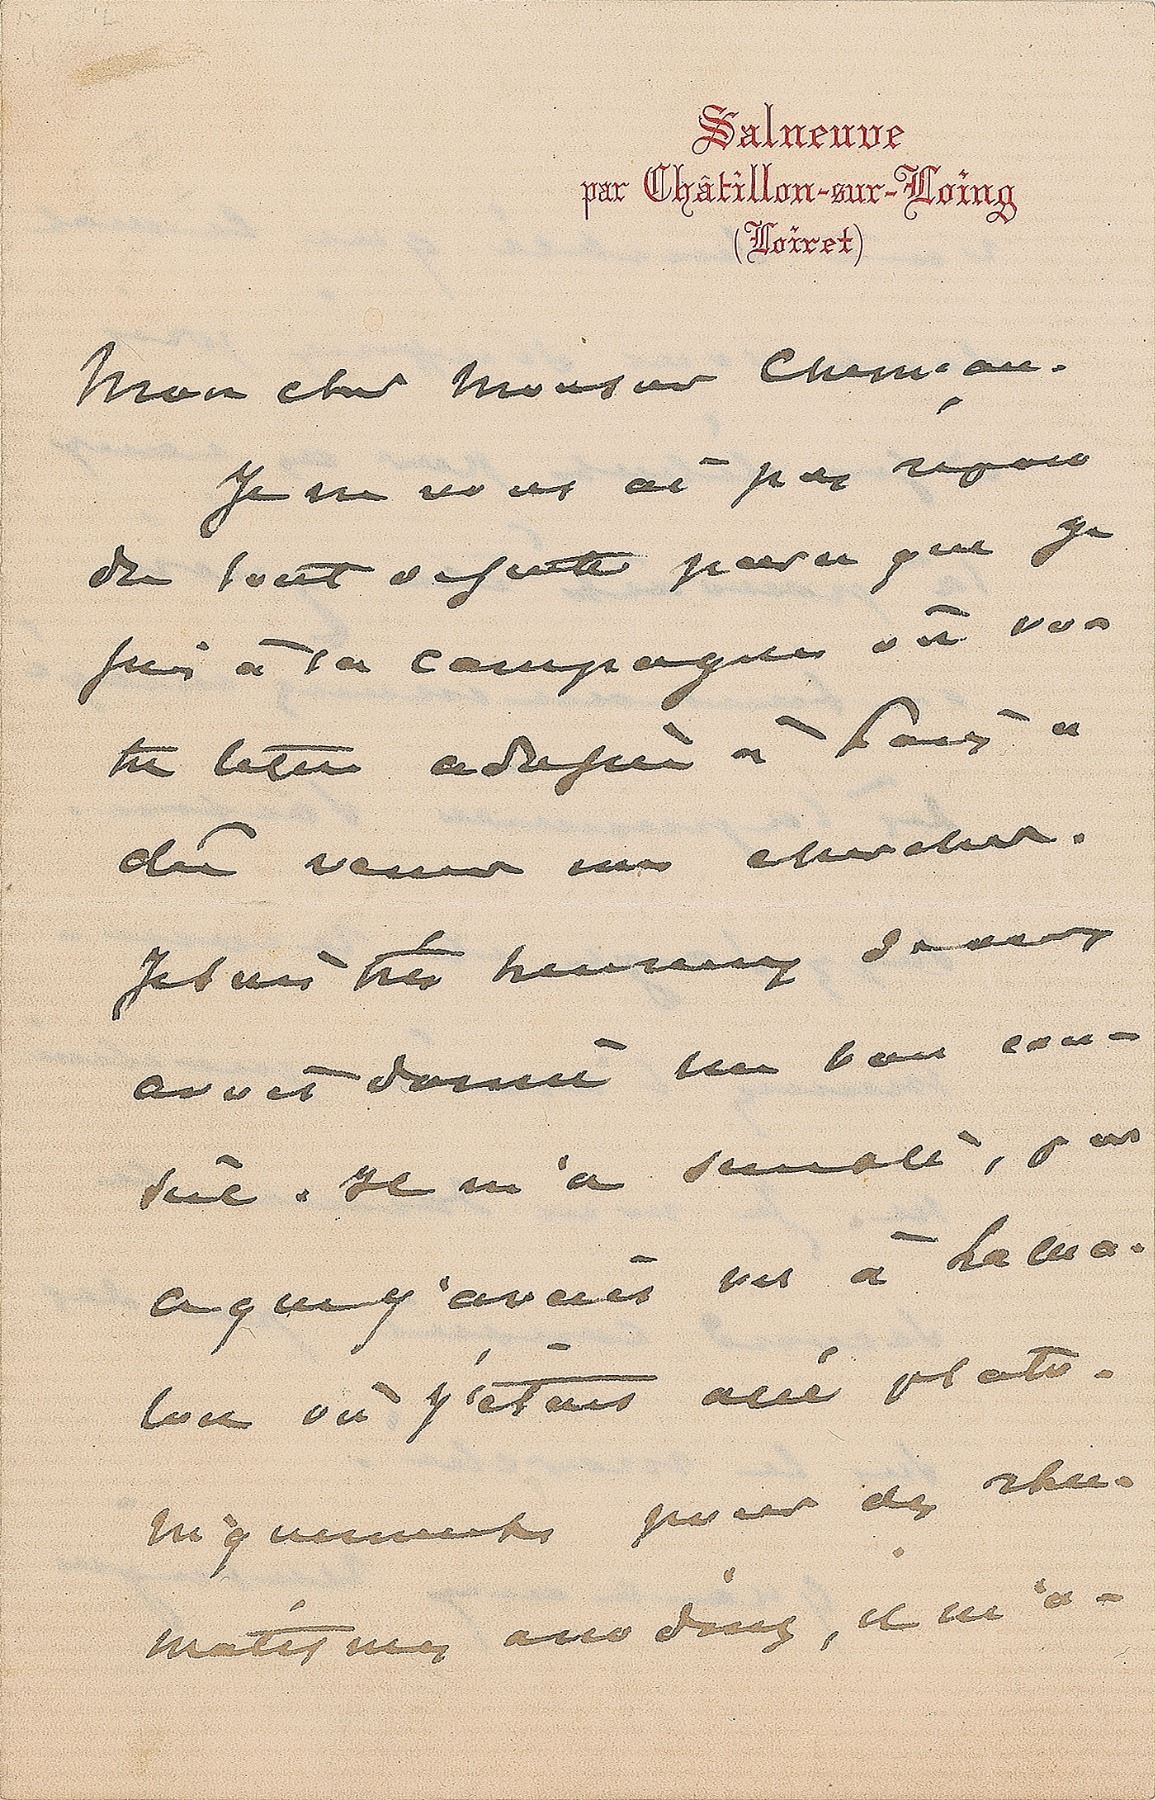 Salneuve
par Châtillon-sur-Loing
(Loiret)
Mon cher Monsieur
Je ne vous ai pas répon
du tout de suite parce que je
suis à la campagne où vo
tre lettre adressée à Paris a
dû venir me chercher.
Je suis très heureux de vous
avoir donné un bon con-
seil. Il m'a semblé, par
ce que j'avais vu à Lama-
lou où j'étais allé plato-
niquement pour des rhu-
matismes anodins, il m'a-